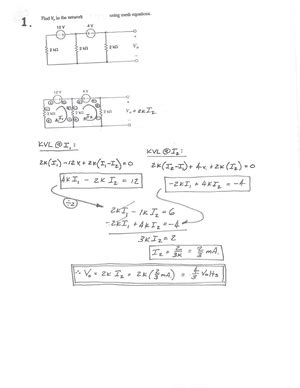 1.
Find Vo in the network using mesh equations.
12 V 4 V
2 kΩ 2 kΩ 2 kΩ Vo
12 V 4 V
2 kΩ 2 kΩ 2 kΩ Vo = 2K I2
I1 I2
KVL @ I1:
2K(I1) -12V + 2K(I1-I2) = 0
4K I1 - 2K I2 = 12
KVL @ I2:
2K(I2-I1) + 4V + 2K(I2) = 0
-2K I1 + 4K I2 = -4
÷2
2K I1 - 1K I2 = 6
-2K I1 + 4K I2 = -4
3K I2 = 2
I2 = 2/3K = 2/3 mA
∴ Vo = 2K I2 = 2K(2/3 mA) = 4/3 Volts